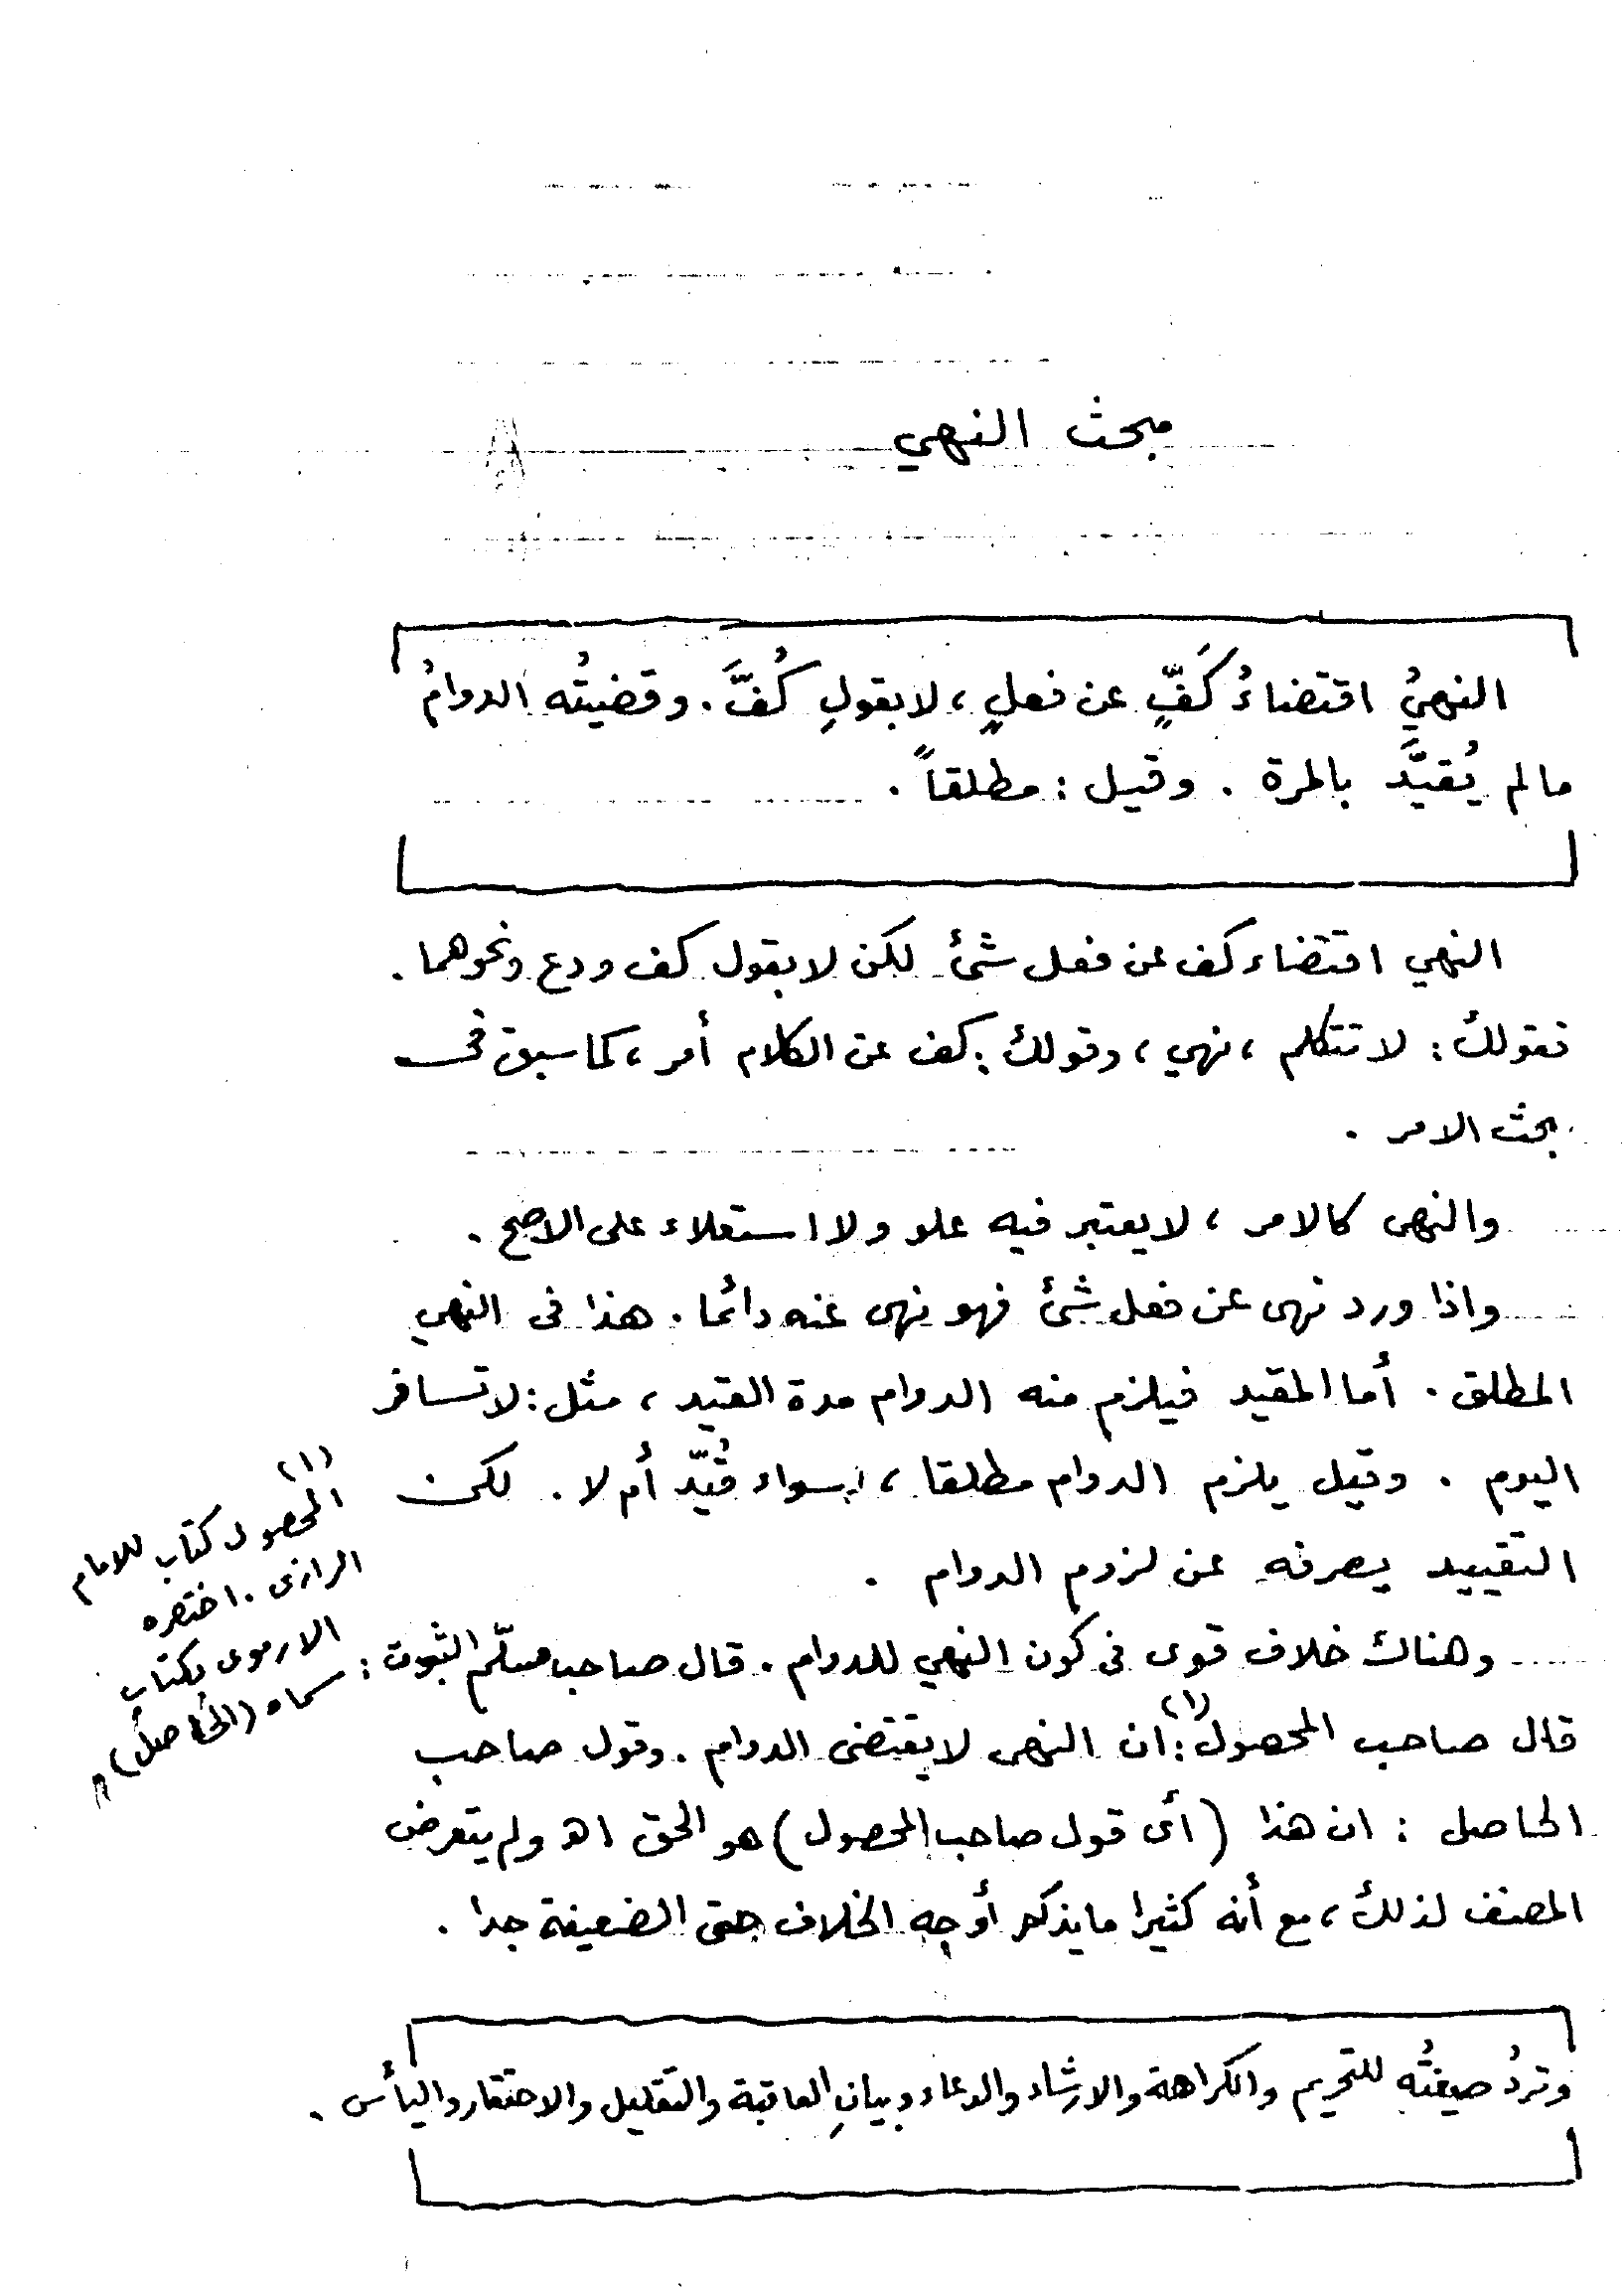 مبحث النهي
النهيُ اقتضاءُ كَفٍّ عن فعلٍ ، لا بقولِ كُفَّ . وقضيتُه الدوامُ
مالم يُقيَّد بالمرة . وقيل : مطلقاً .
النهي اقتضاء كف عن فعل شئ لكن لا بقول كف ودع ونحوهما .
فقولك : لا تتكلم ، نهي ، وقولك : كف عن الكلام أمر ، كما سبق في
بحث الامر .
والنهى كالامر ، لا يعتبر فيه علو ولا استعلاء على الاصح .
واذا ورد نهى عن فعل شئ فهو نهى عنه دائما . هذا فى النهي
المطلق . أما المقيد فيلزم منه الدوام مدة القيد ، مثل : لا تسافر
اليوم . وقيل يلزم الدوام مطلقا ، سواء قُيّد أم لا . لكن
التقييد يصرفه عن لزوم الدوام .
وهناك خلاف قوى فى كون النهي للدوام . قال صاحب مسلّم الثبوت :
قال صاحب المحصول (١) : ان النهى لا يقتضى الدوام . وقول صاحب
الحاصل : ان هذا ( أى قول صاحب المحصول ) هو الحق اه ولم يتعرض
المصنف لذلك ، مع أنه كثيرا ما يذكر أوجه الخلاف حتى الضعيفة جدا .
(١)
المحصول كتاب للامام
الرازى . اختصره
الارموى بكتاب
سماه (الحاصل)
وتردُ صيغتُه للتحريم والكراهة والارشاد والدعاء وبيانِ العاقبة والتقليل والاحتقار واليأس .